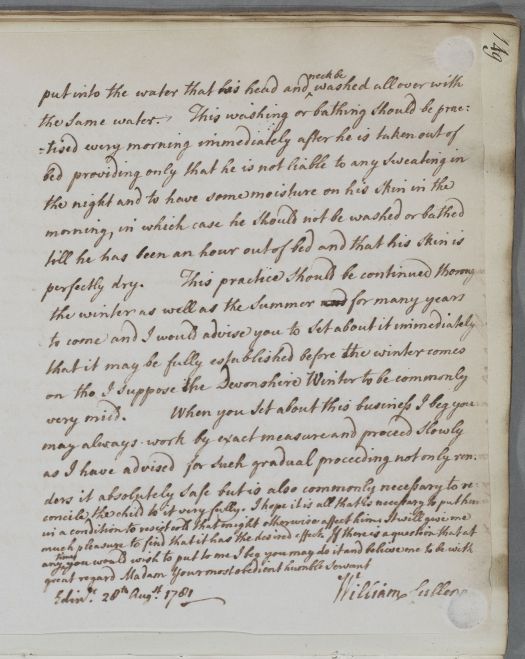 149
put into the water that his head and neck be washed all over with
the same water. This washing or bathing should be prac:
:tised every morning immediately after he is taken out of
bed providing only that he is not liable to any Sweating in
the night and to have some moisture on his Skin in the
morning, in which case he Should not be washed or bathed
till he has been an hour out of bed and that his Skin is
perfectly dry. This practice Should be continued thoroug
the winter as well as the Summer and for many years
to come and I would advise you to Set about it immediately
that it may be fully established before the winter comes
on tho I suppose the Devonshire Winter to be commonly
very mild. When you Set about this business I beg you
may always work by exact measure and proceed Slowly
as I have advised for Such gradual proceeding not only ren:
ders it absolutely Safe but is also commonly necessary to re:
concile the child to it very fully. I hope it is all that is necessary to put him
in a condition to resist cold that might otherwise affect him. It will give me
much pleasure to find that it has the desired effect. If there is a question that at
any time you would wish to put to me I beg you may do it and believe me to be with
great regard Madam Your most obedient humble Servant
Edinr. 28th Augst. 1781 William Cullen